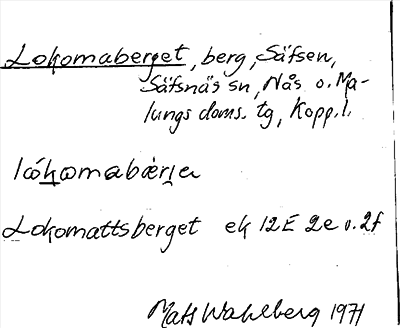 Lokomaberget, berg, Säfsen,
Säfsnäs sn, Nås o. Ma-
lungs doms. tg, Kopp. l.
lókomabàrje
Lokomattsberget ek 12E 2e o. 2f
Mats Wahlberg 1971